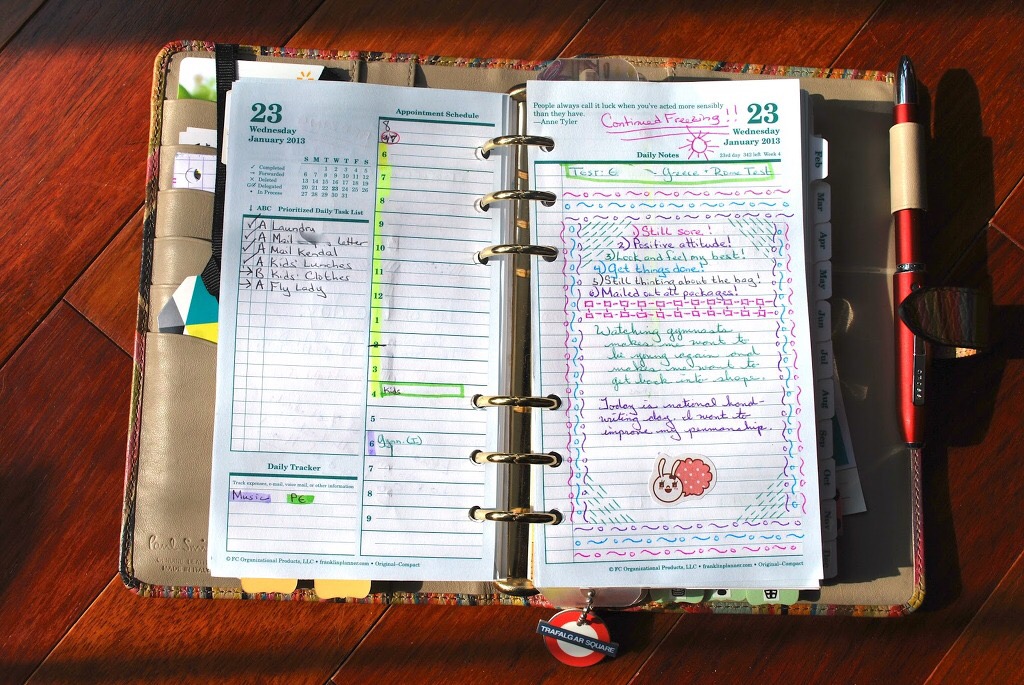 23
Wednesday
January 2013
S M T W T F S
1 2 3 4 5
6 7 8 9 10 11 12
13 14 15 16 17 18 19
20 21 22 23 24 25 26
27 28 29 30 31
✓ Completed
→ Forwarded
× Deleted
Delegated
• In Process
↓ ABC Prioritized Daily Task List
✓ A Laundry
✓ A Mail letter
✓ A Mail Kendal
✓ A Kids' Lunches
→ B Kids' Clothes
→ A Fly Lady
Daily Tracker
Track expenses, e-mail, voice mail, or other information
Music PE
© FC Organizational Products, LLC • franklinplanner.com • Original–Compact
Appointment Schedule
8
6
7
8
9
10
11
12
1
2
3
4 Kids
5
6 Gym. (I)
7
8
9
Paul Smith
MADE IN ITALY
People always call it luck when you've acted more sensibly
than they have.
—Anne Tyler
Continued Freezing!!
23
Wednesday
January 2013
Daily Notes
23rd day 342 left Week 4
Test: 6 ~ Greece • Rome Test
1) Still sore!
2) Positive attitude!
3) Look and feel my best!
4) Get things done!
5) Still thinking about the bag!
6) Mailed out all packages!
Watching gymnasts
makes me want to
be young again and
makes me want to
get back into shape.
Today is national hand-
writing day. I want to
improve my penmanship.
© FC Organizational Products, LLC • franklinplanner.com • Original–Compact
Feb
Mar
Apr
May
Jun
Jul
Aug
Sep
Oct
Nov
TRAFALGAR SQUARE